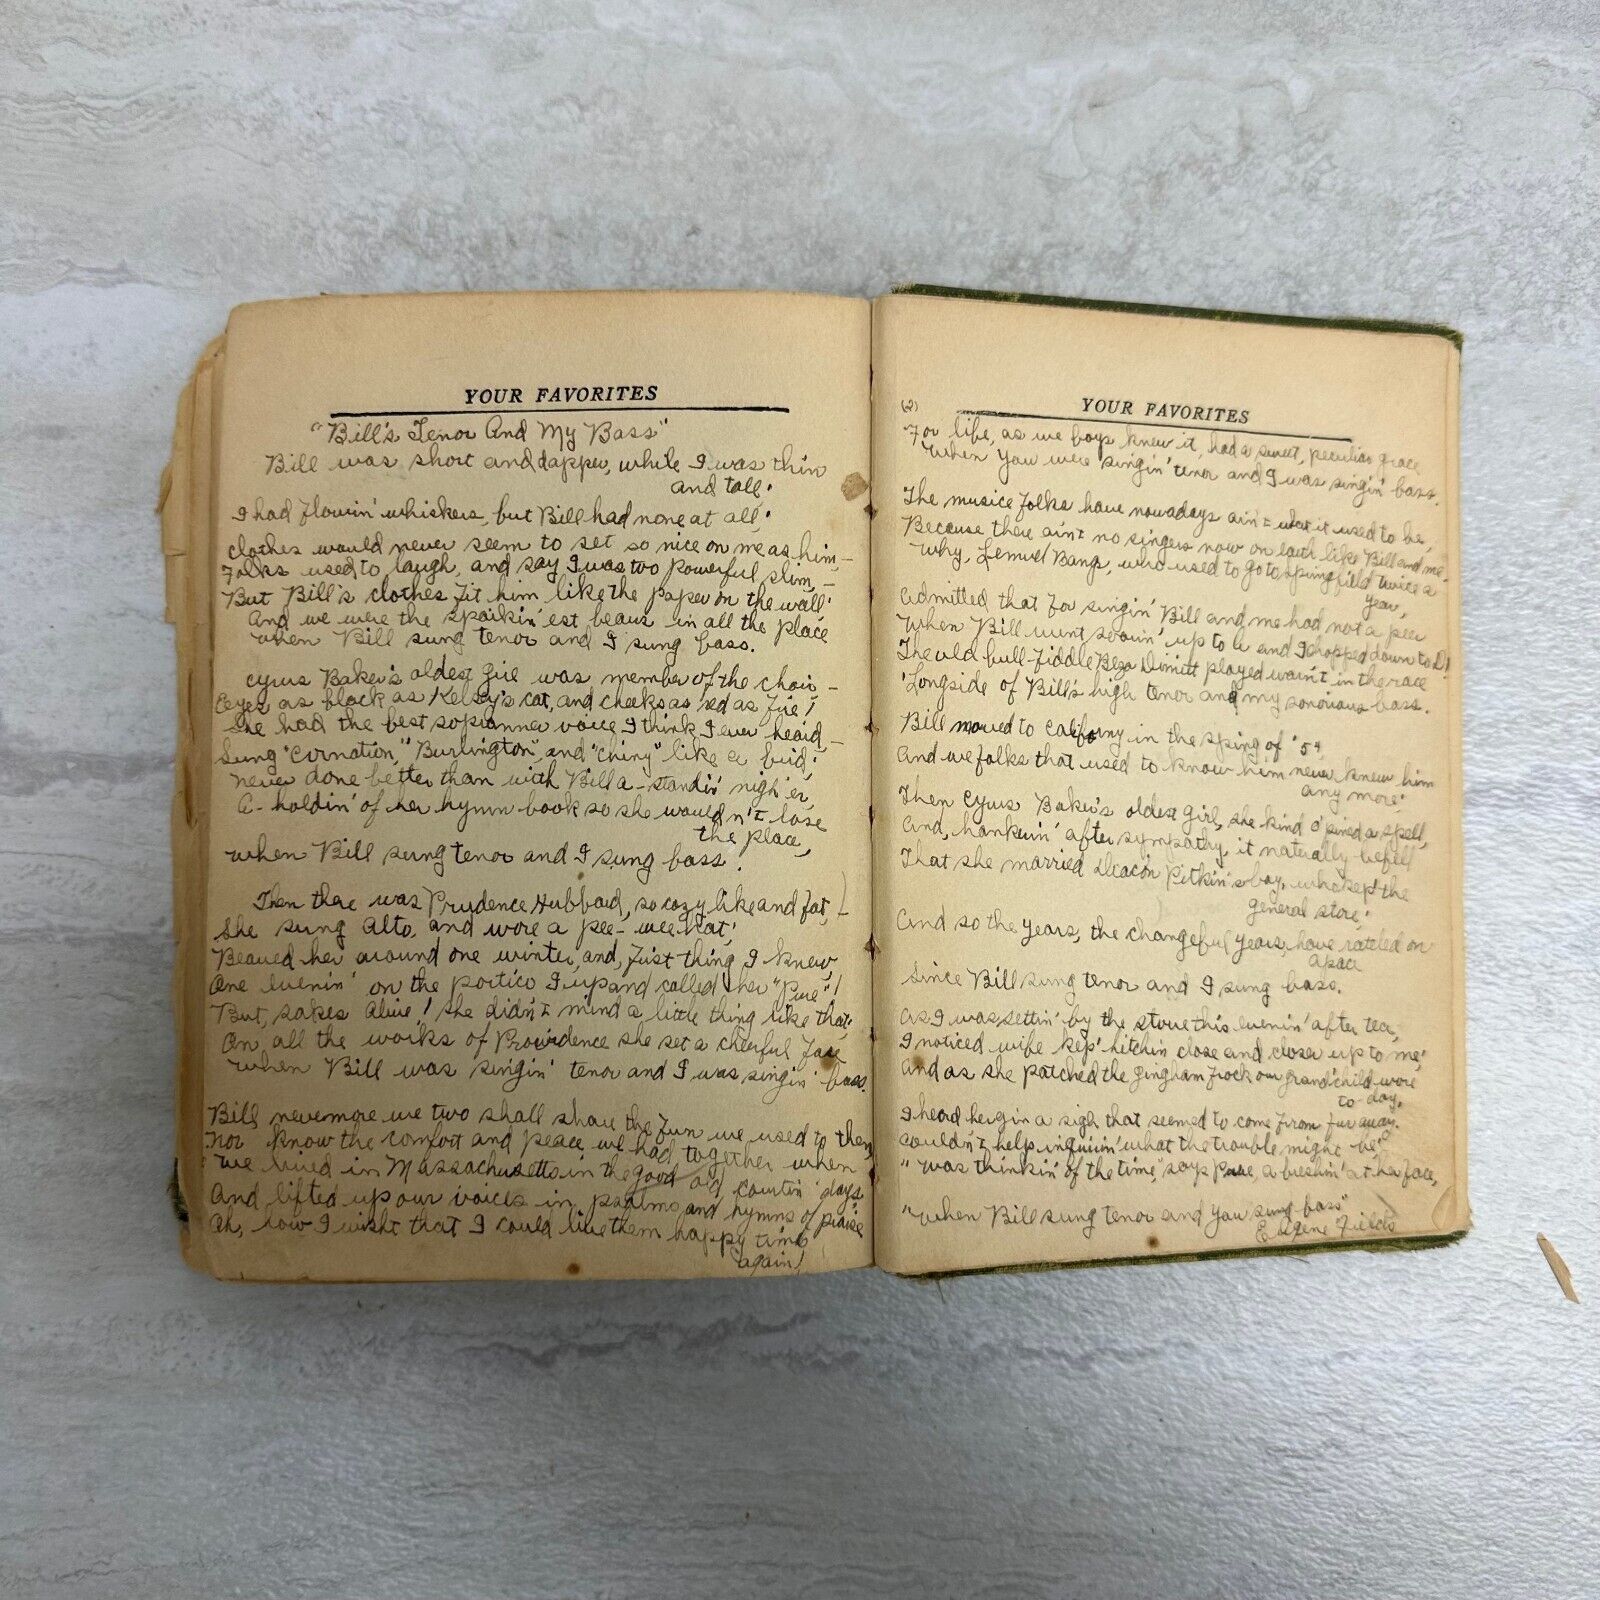 YOUR FAVORITES
"Bill's Tenor And My Bass"
Bill was short and dapper, while I was thin
and tall;
I had flowin' whiskers, but Bill had none at all;
Clothes would never seem to set so nice on me as him,—
Folks used to laugh, and say I was too powerful slim,—
But Bill's clothes fit him like the paper on the wall;
And we were the sparkin'est beaus in all the place
When Bill sung tenor and I sung bass.
Cyrus Baker's oldest girl was member of the choir—
Eyes as black as Kelsey's cat, and cheeks as red as fire!
She had the best sopranner voice I think I ever heard,—
Sung "Cornation," "Burlington," and "Chiny" like a bird;
Never done better than with Bill a-standin' nigh 'er,
A-holdin' of her hymn-book so she wouldn't lose
the place,
When Bill sung tenor and I sung bass.
Then there was Prudence Hubbard, so cozy-like and fat,—
She sung Alto, and wore a pee-wee hat;
Beaued her around one winter, and, first thing I knew,
One evenin' on the portico I up and called her "Prue"!
But, sakes alive! she didn't mind a little thing like that;
On all the works of Providence she set a cheerful face
When Bill was singin' tenor and I was singin' bass.
Bill nevermore we two shall share the fun we used to then,
Nor know the comfort and peace we had together when
We lived in Massachusetts in the good old courtin' days,
And lifted up our voices in psalms and hymns of praise
Oh, how I wisht that I could live them happy times
again!
(2)
YOUR FAVORITES
For life, as we boys knew it, had a sweet, peculiar grace
When you were singin' tenor and I was singin' bass.
The musice folks have nowadays ain't what it used to be,
Because there ain't no singers now on earth like Bill and me.
Why, Lemuel Bangs, who used to go to Springfield twice a
year,
Admitted that for singin' Bill and me had not a peer
When Bill went soarin' up to A and I dropped down to D!
The old bull-fiddle Beza Dimitt played warn't in the race
'Longside of Bill's high tenor and my sonorious bass.
Bill moved to Californy in the spring of '54
And we folks that used to know him never knew him
any more;
Then Cyrus Baker's oldest girl, she kind o' pined a spell,
And, hankerin' after sympathy, it naterally befell
That she married Deacon Pitkin's boy, who kep' the
general store;
And so the years, the changeful years, have rattled on
apace
Since Bill sung tenor and I sung bass.
As I was settin' by the stove this evenin' after tea,
I noticed wife kep' hitchin close and closer up to me;
And as she patched the gingham frock our grandchild wore
to-day,
I heard her gin a sigh that seemed to come from fur away.
Couldn't help inquirin' what the trouble might be;
"Was thinkin' of the time," says Prue, a breshin' at her face,
"When Bill sung tenor and you sung bass"
Eugene Fields